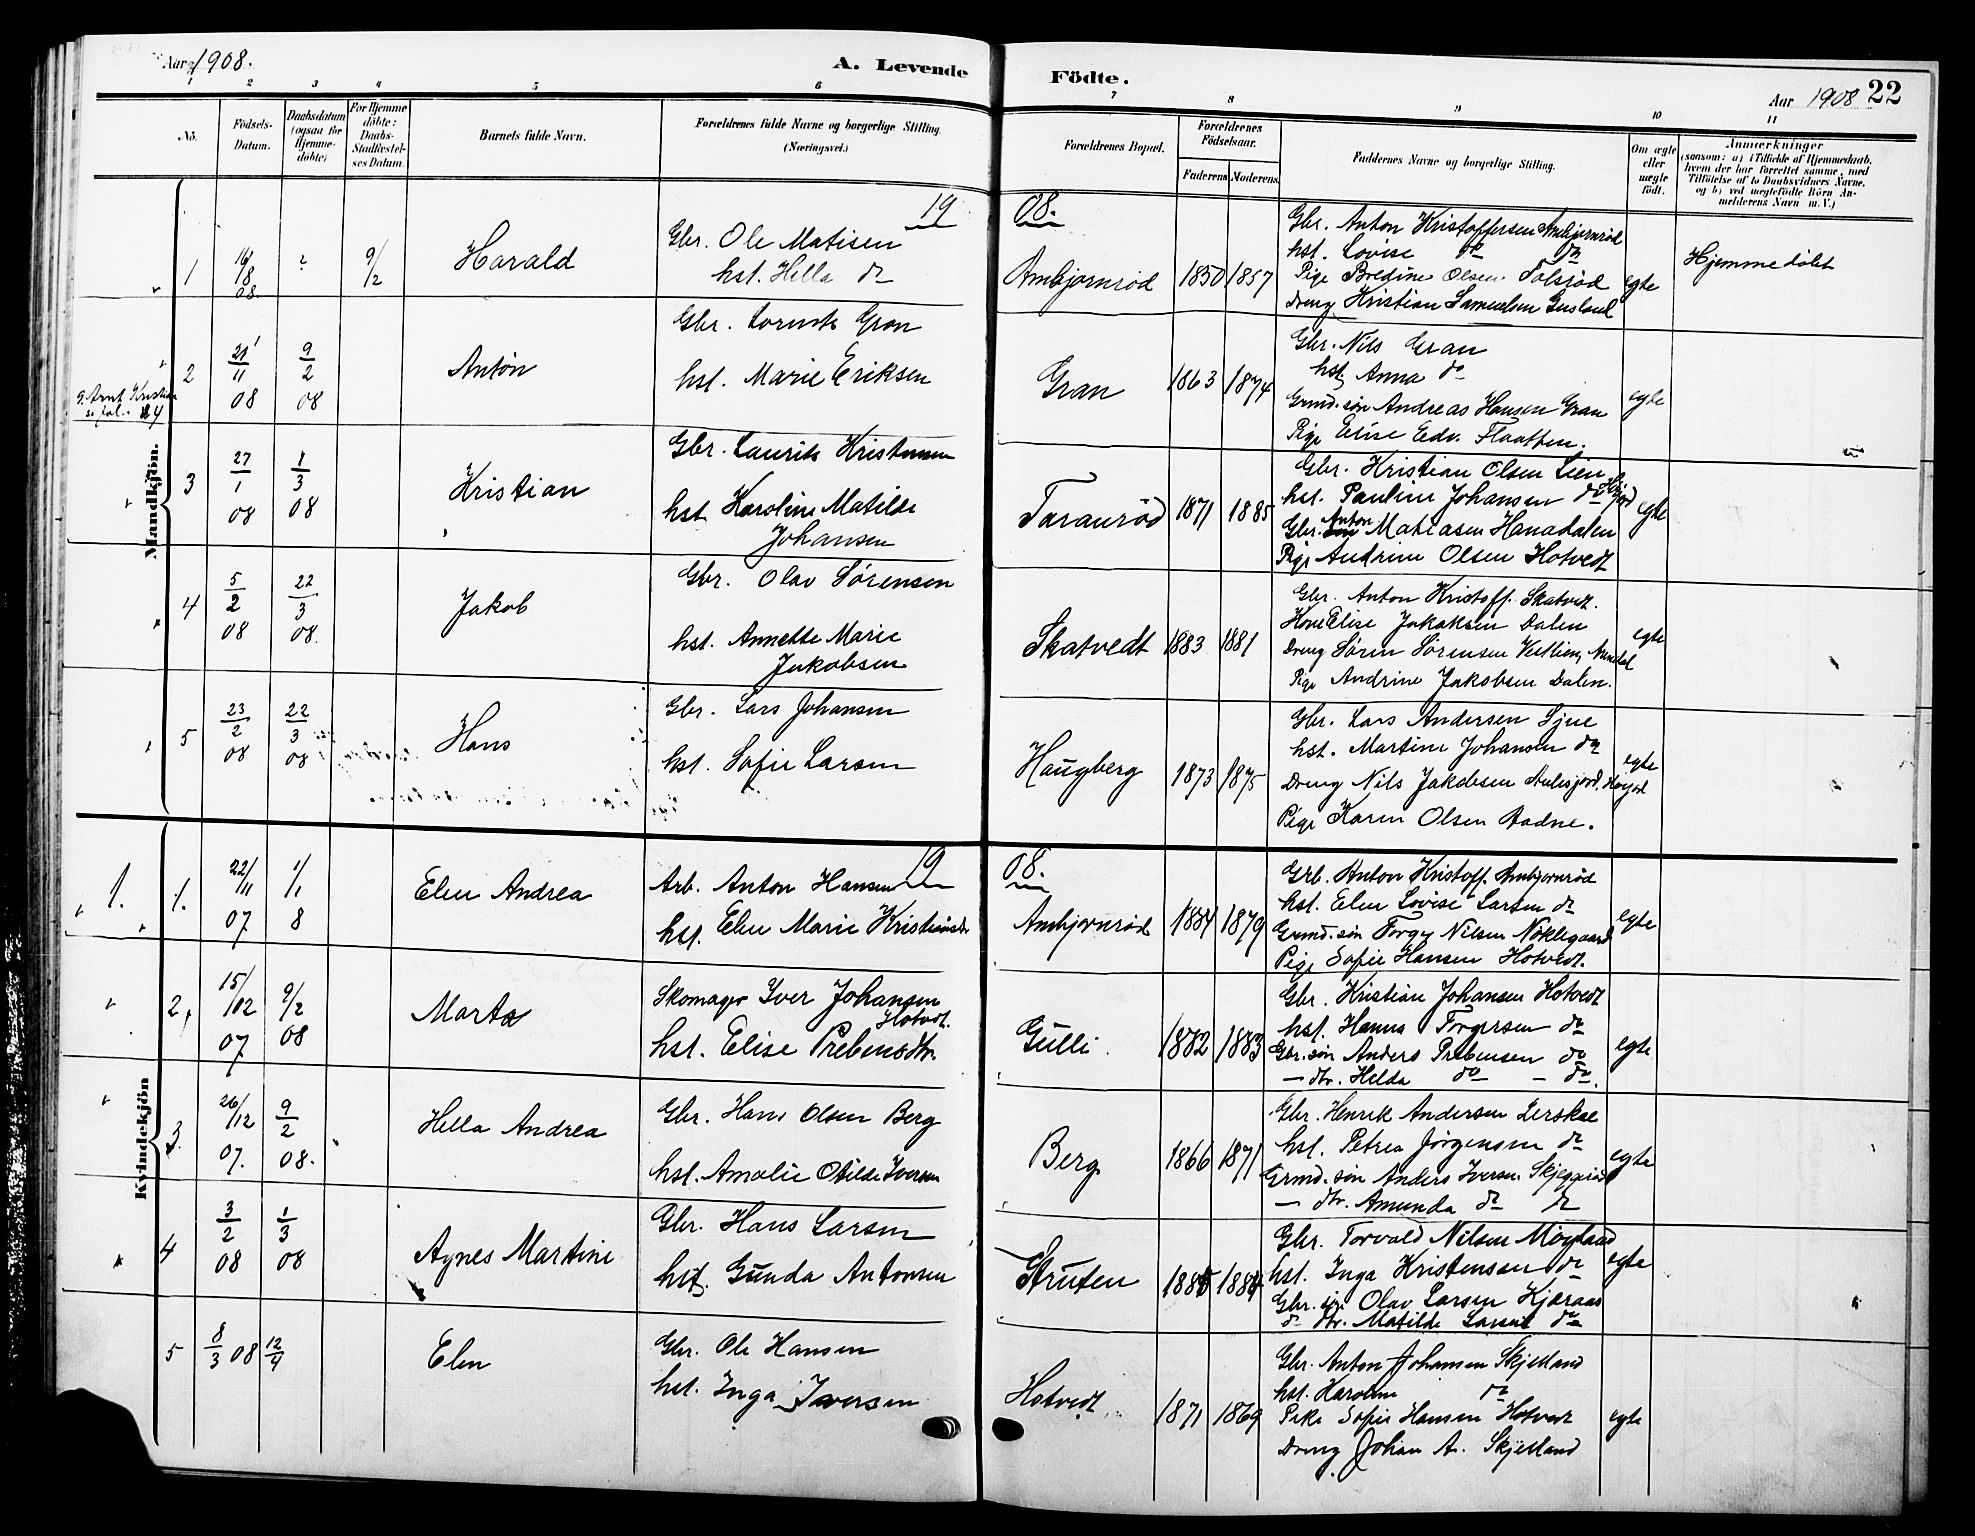 Aar 1908.
A. Levende Födte.
Aar 1908 22
1 2 3 4 5 6 7 8 9 10 11
Nô.
Födsels-Datum.
Daabsdatum (ogsaa for Hjemme-döbte)
For Hjemme döbte: Daabs-Stadfestel-ses Datum.
Barnets fulde Navn.
Forældrenes fulde Navne og borgerlige Stilling.
(Næringsvei.)
Forældrenes Bopæl.
Forældrenes Födselsaar.
Faderens Moderens
Faddernes Navne og borgerlige Stilling.
Om ægte eller uægte födt.
Anmærkninger
(saasom: a) i Tilfælde af Hjemmedaab,
hvem der har forrettet samme, med
Tilföielse af to Daabsvidners Navne,
og b) ved uægtefödte Börn An-
melderens Navn m. V.)
Mandkjön.
19 08.
1 16/8 08. 9/2 Harald
Gbr. Ole Matisen
hst. Hella do
Ambjornröd 1850 1857
Gbr. Anton Kristoffersen Ambjornröd
hst. Lovise do do
Pige Bredine Olsen Tolsröd
Dreng Kristian Samuelsen Gusland
egte
Hjemmedöbt
2 21/11 08 9/2 08 Anton
Gbr. Gran
hst. Marie Eriksen
Gran 1863 1874
Gbr. Nils Gran
hst. Anna do
Grmd. sön Andreas Hansen Gran
Pige Elise Edv. Flaatten.
egte
9. Arnt Kristian
se fol. 24
3 27/1 08 1/3 08 Kristian
Gbr. Laurits Kristensen
hst Karoline Matilde
Johansen
Taranröd 1871 1885
Gbr. Kristian Olsen Lien
hst. Pauline Johansen do
Gbr. Anton Matiasen Hanadalen
Pige Andrine Olsen Hotvedt
egte
4 5/2 08 22/3 08. Jakob
Gbr. Olav Sörensen
hst. Annette Marie
Jakobsen
Skatvedt 1883 1881
Gbr. Anton Kristoff. Skatvedt.
Kone Elise Jakobsen Dalen
Dreng Sören Sörensen
Pige Andrine Jakobsen Dalen.
egte
5 23/2 08 22/3 08 Hans
Gbr. Lars Johansen
hst. Sofie Larsen
Haugberg 1873 1875
Gbr. Lars Andersen Gjue
hst. Martine Johansen do
Dreng Nils Jakobsen
Pige Karen Olsen Aadne.
egte
Kvindekjön
19 08.
1. 1. 22/11 07 1/1 8 Elen Andrea
Arb. Anton Hansen
hst. Elen Marie Kristiansdr
Ambjornröd 1884 1879
Grb. Anton Kristoff. Ambjornröd
hst. Elen Lovise Larsen do
Grmd. sön Torge Nilsen Nöklegaard
Pige Sofie Hansen Hotvedt.
egte
2. 15/12 07 9/2 08 Marta
Skomager Iver Johansen
Hotvdt.
hst. Elise Prebensdtr.
Gulli. 1882 1883
Gbr. Kristian Johansen Hotvedt
hst. Hanna Torgersen do
Gbr. sön Anders Prebensen do
— dtr. Helda do — do.
egte
3. 26/12 07. 9/2 08. Hella Andrea
Gbr. Hans Olsen Berg
hst. Amalie Otilde Iversen
Berg 1866 1871
Gbr. Henrik Andersen Lerskal
hst. Petrea Jörgensen do
Grmd. sön Anders Iversen Skjeggeröd
— dtr. Amunda do do
egte
4 3/2 08 1/3 08 Agnes Martine
Gbr. Hans Larsen
hst. Gunda Antonsen
Struten
Gbr. Torvald Nilsen Moyland
hst. Inga Kristensen do
Gbr. sön Olav Larsen Hjæraas
do dtr. Matilde Larsen do
egte
5 8/3 08 12/4 Elen
Gbr. Ole Hansen
hst. Inga Iversen
Hotvedt 1871 1869
Gbr. Anton Johansen Skjelland
hst. Karoline do
Pike Sofie Hansen Hotvedt
Dreng Johan A. Skjelland
egte